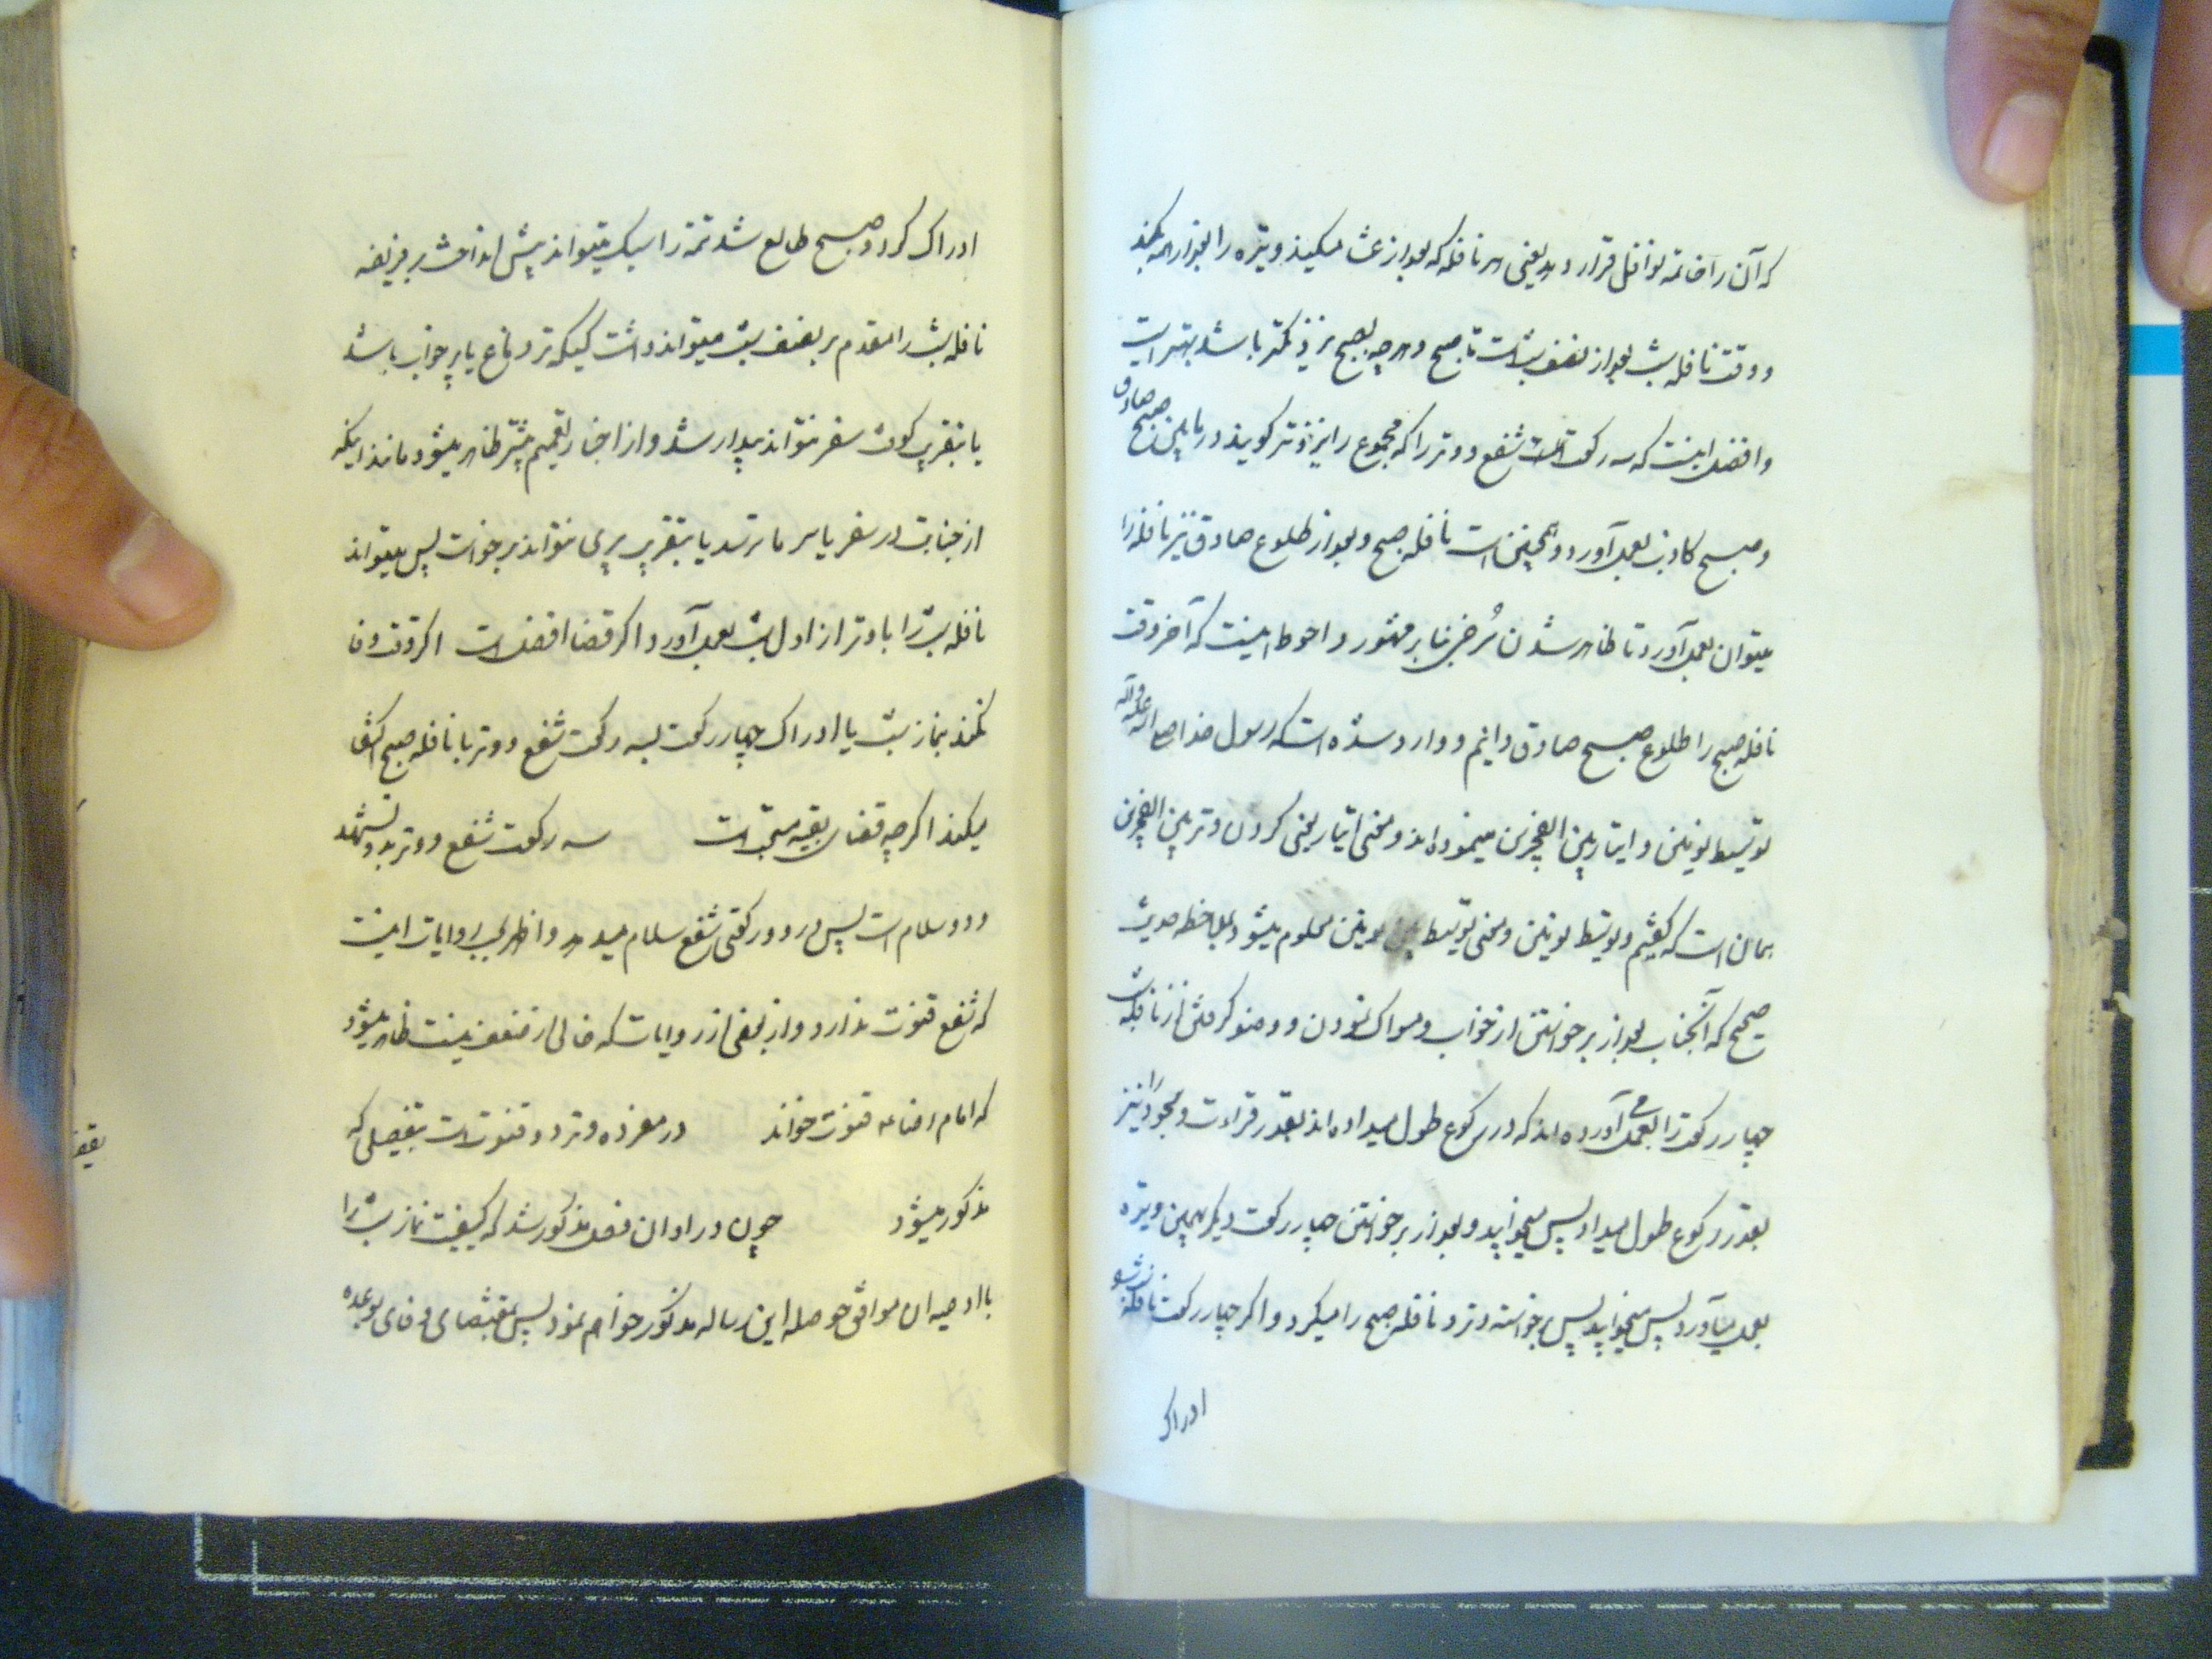 که آن را خاتمه نوافل قرار دهد یعنی هر نافله که بعد از عشا میکند وتیره را بعد از همه بکند
و وقت نافله شب بعد از نصف شب است تا صبح و هر چه بصبح نزدیکتر باشد بهتر است
و افضل اینست که سه رکعت شفع و وتر را که مجموع را نیز وتر گویند در مابین صبح صادق
و صبح کاذب بعمل آورد و همچنین است نافله صبح و بعد از طلوع صادق نیز نافله را
میتوان بعمل آورد تا ظاهر شدن سُرخی بنا بر مشهور و احوط اینست که آخر وقت
نافله صبح را طلوع صبح صادق دانیم و وارد شده است که رسول خدا صلی الله علیه وآله
توسیط نومتین و ایتار بین الفجرین مینموده اند و معنی ایتار یعنی کردن وتر بین الفجرین
همان است که گفتیم و توسیط نومتین و معنی توسیط بین نومتین معلوم میشود بملاحظه حدیث
صحیح که آنجناب بعد از برخواستن از خواب و مسواک نمودن و وضو گرفتن از نافله شب
چهار رکعت را بعمل می آورده اند که در رکوع طول میداده اند بقدر قرائت و سجود را نیز
بقدر رکوع طول میداد پس میخوابید و بعد از برخواستن چهار رکعت دیگر بهمین وتیره
بعمل میآورد پس میخوابید پس برخواسته وتر و نافله صبح را میکرد و اگر چهار رکعت نافله شب
ادراک
ادراک کرد و صبح طالع شد تتمه را سبک میتواند پیش انداخت بر فریضه
نافله شب را مقدم بر نصف شب میتواند داشت کسیکه تر دماغ یا پر خواب باشد
یا بتقریب کوفت سفر نتواند بیدار شد و از اخبار تعمیم بیشتر ظاهر میشود مانند اینکه
از جنابت در سفر یا سرما ترسد یا بتقریب پیری نتواند برخواست پس میتواند
نافله شب را با وتر از اول شب بعمل آورد و اگر قضا افضل است اگر وقت وفا
نکند بنماز شب یا ادراک چهار رکعت بسه رکعت شفع و وتر با نافله صبح اکتفا
میکند اگر چه قضای بقیه مستحب است سه رکعت شفع و وتر بدو تشهد
و دو سلام است پس در دو رکعتی شفع سلام میدهد و اظهر بحسب روایات اینست
که شفع قنوت ندارد و از بعضی از روایات که خالی از ضعف نیست ظاهر میشود
که امام رضا ع قنوت خواند در مفرده وتر دو قنوت است بتفصیلی که
مذکور میشود چون در اول ان فصل مذکور شد که کیفیت نماز شب را
با ادعیه ان موافق حوصله این رساله مذکور خواهم نمود پس بمقتضای وفای بوعده